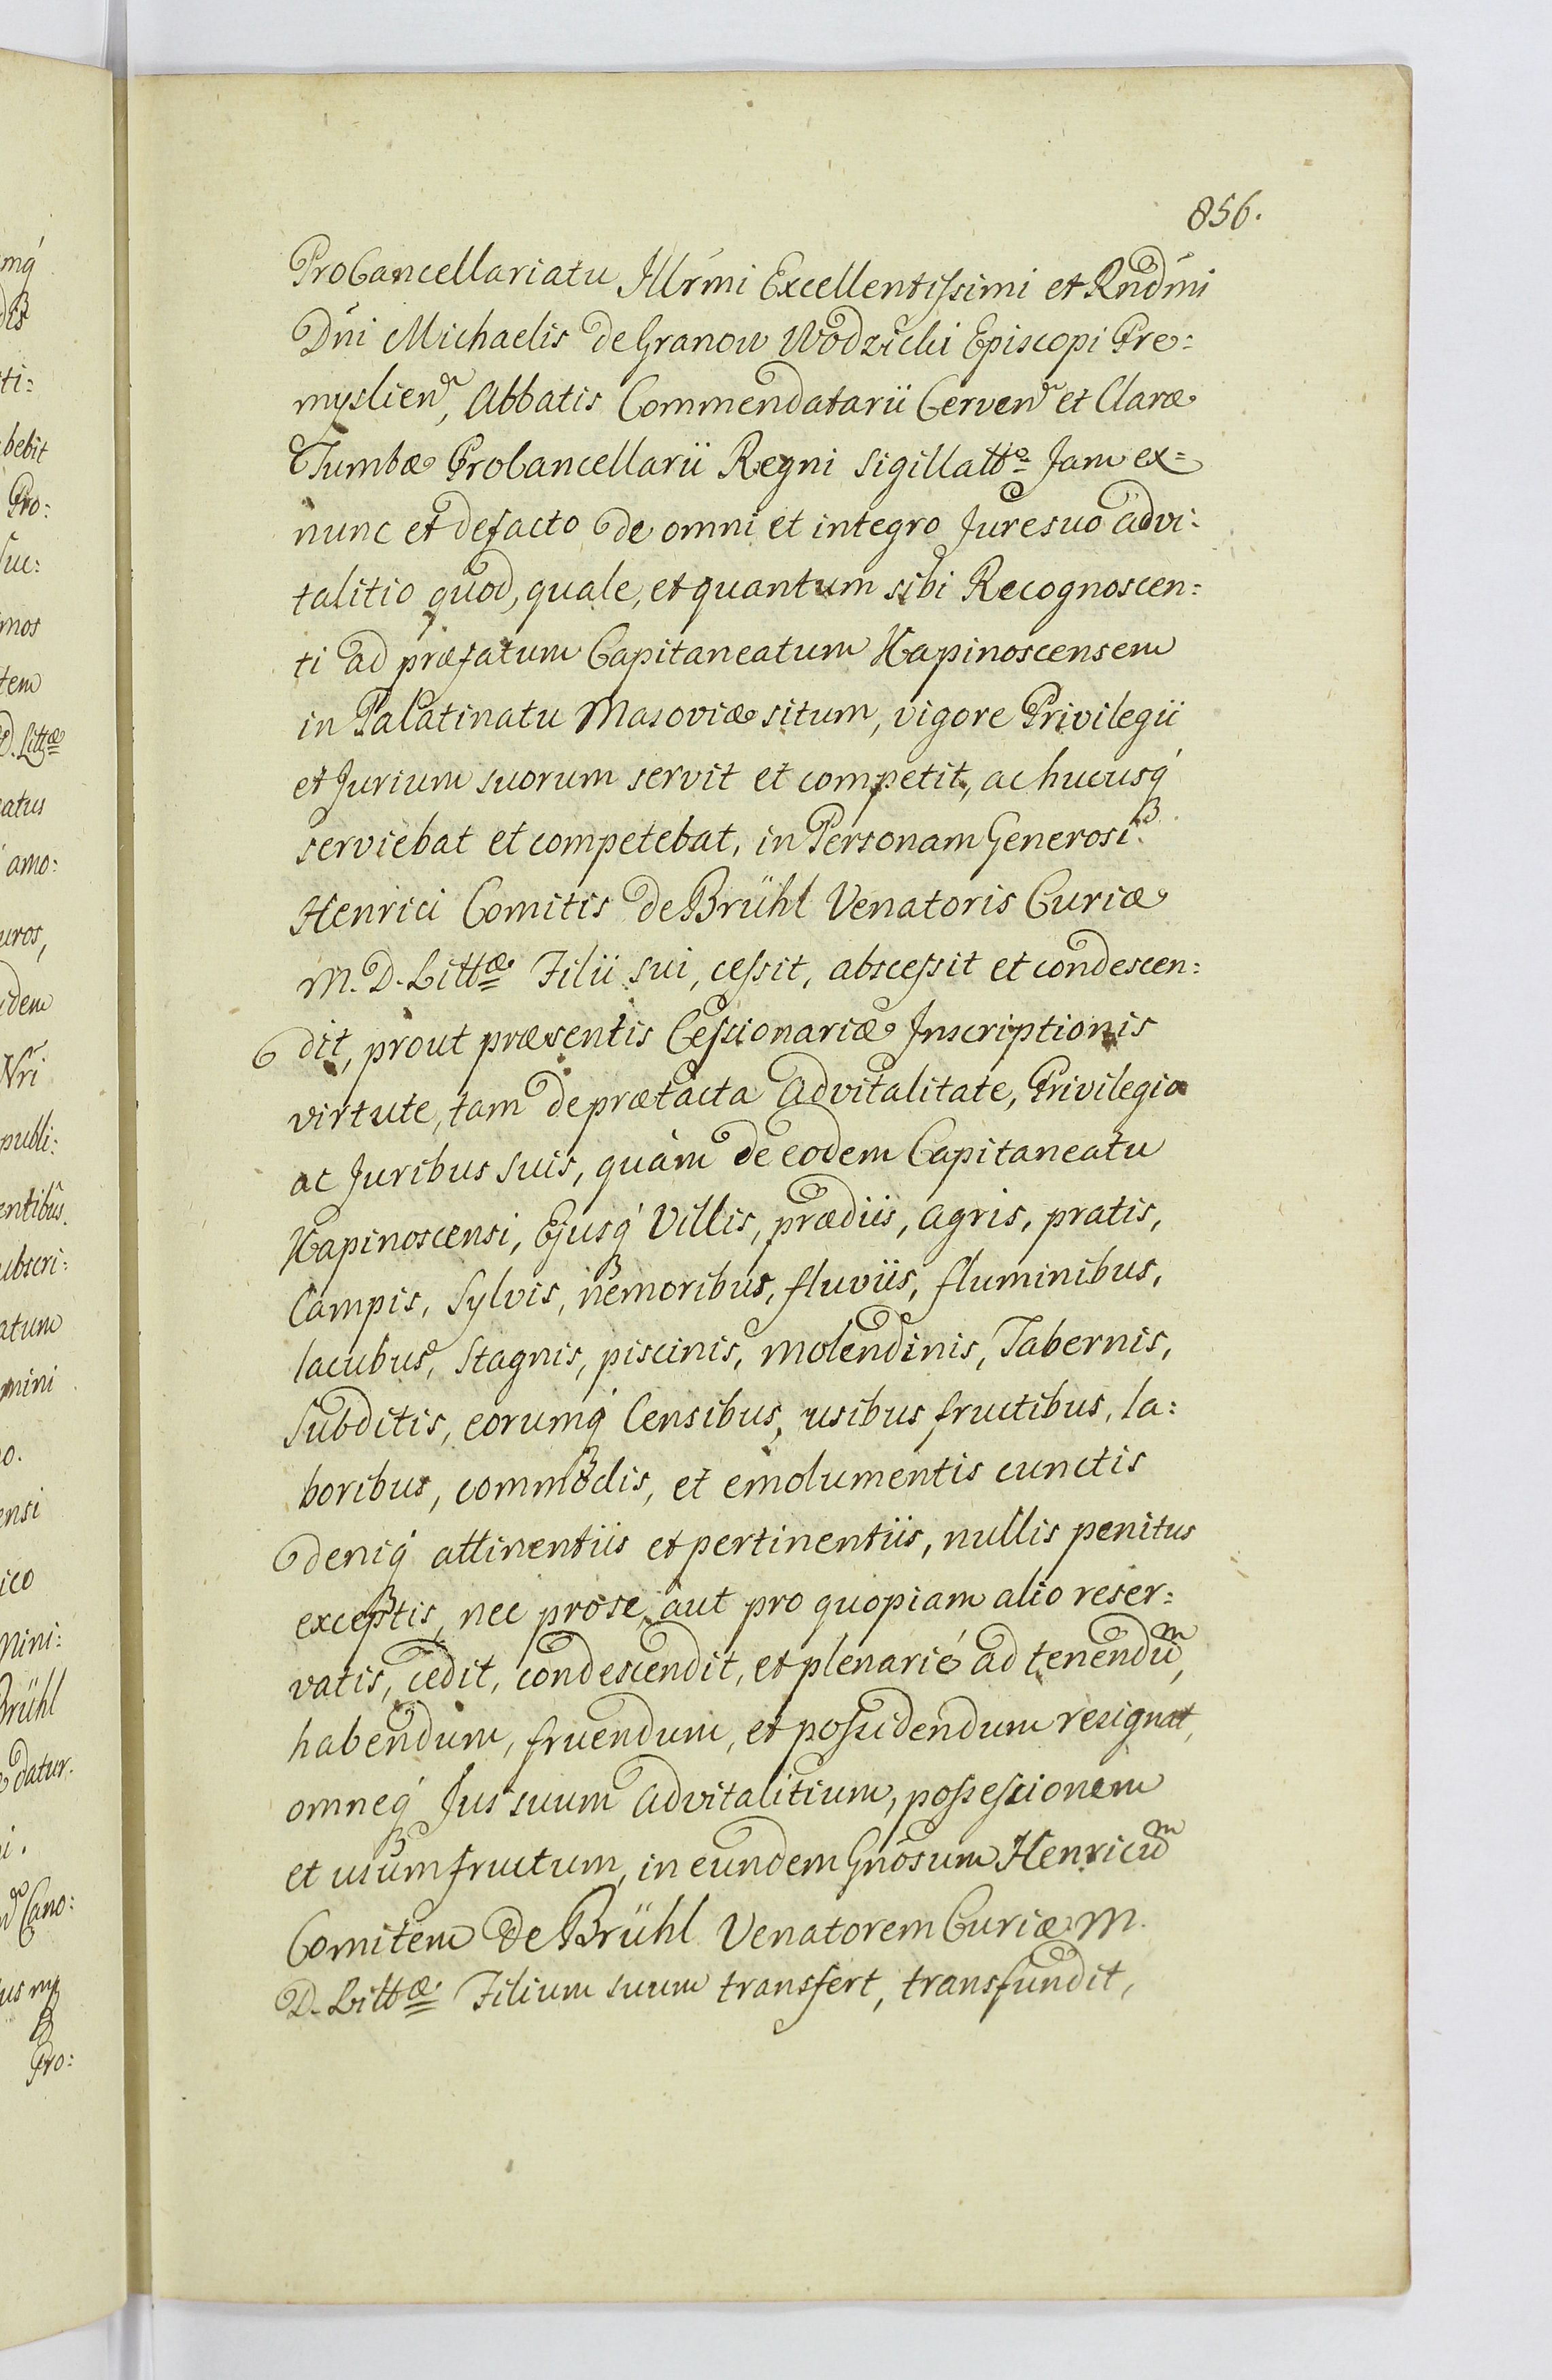 856.
ProCancellariatu Illrmi Excellentissimi et Rndmi
Dni Michaelis de Granow Wodzicki Episcopi Pre=
myslien, Abbatis Commendatarii Cerven et Claræ
Tumbæ ProCancellarii Regni sigillatto Jam ex=
nunc et de facto de omni et integro Jure suo advi=
talitio quod, quale, et quantum sibi Recognoscen=
ti ad præfatum Capitaneatum Kapinoscensem
in Palatinatu Masoviæ situm, vigore Privilegii
et Jurium suorum servit et competit, ac hucusq́
serviebat et competebat, in Personam Generosi
Henrici Comitis de Brühl Venatoris Curiæ
M. D. Littæ Filii sui, cessit, abscessit et condescen=
dit, prout præsentis Cessionariæ Inscriptionis
virtute, tam de prætacta advitalitate, Privilegio
ac Juribus suis, quàm de eodem Capitaneatu
Kapinoscensi, Ejusq́ Villis, prædiis, agris, pratis,
Campis, Sylvis, nemoribus, fluviis, fluminibus,
lacubus, stagnis, piscinis, molendinis, Tabernis,
Subditis, eorumq́ Censibus, usibus fructibus, la=
boribus, commodis, et emolumentis cunctis
deniq́ attinentiis et pertinentiis, nullis penitus
exceptis, nec pro se, aut pro quopiam alio reser=
vatis, cedit, condescendit, et plenarié ad tenendum,
habendum, fruendum, et possidendum resignat,
omneq́ Jus suum advitalitium, possessionem
et usumfructum, in eundem Gnosum Henricum
Comitem de Brühl Venatorem Curiæ M.
D. Littæ Filium suum transfert, transfundit,